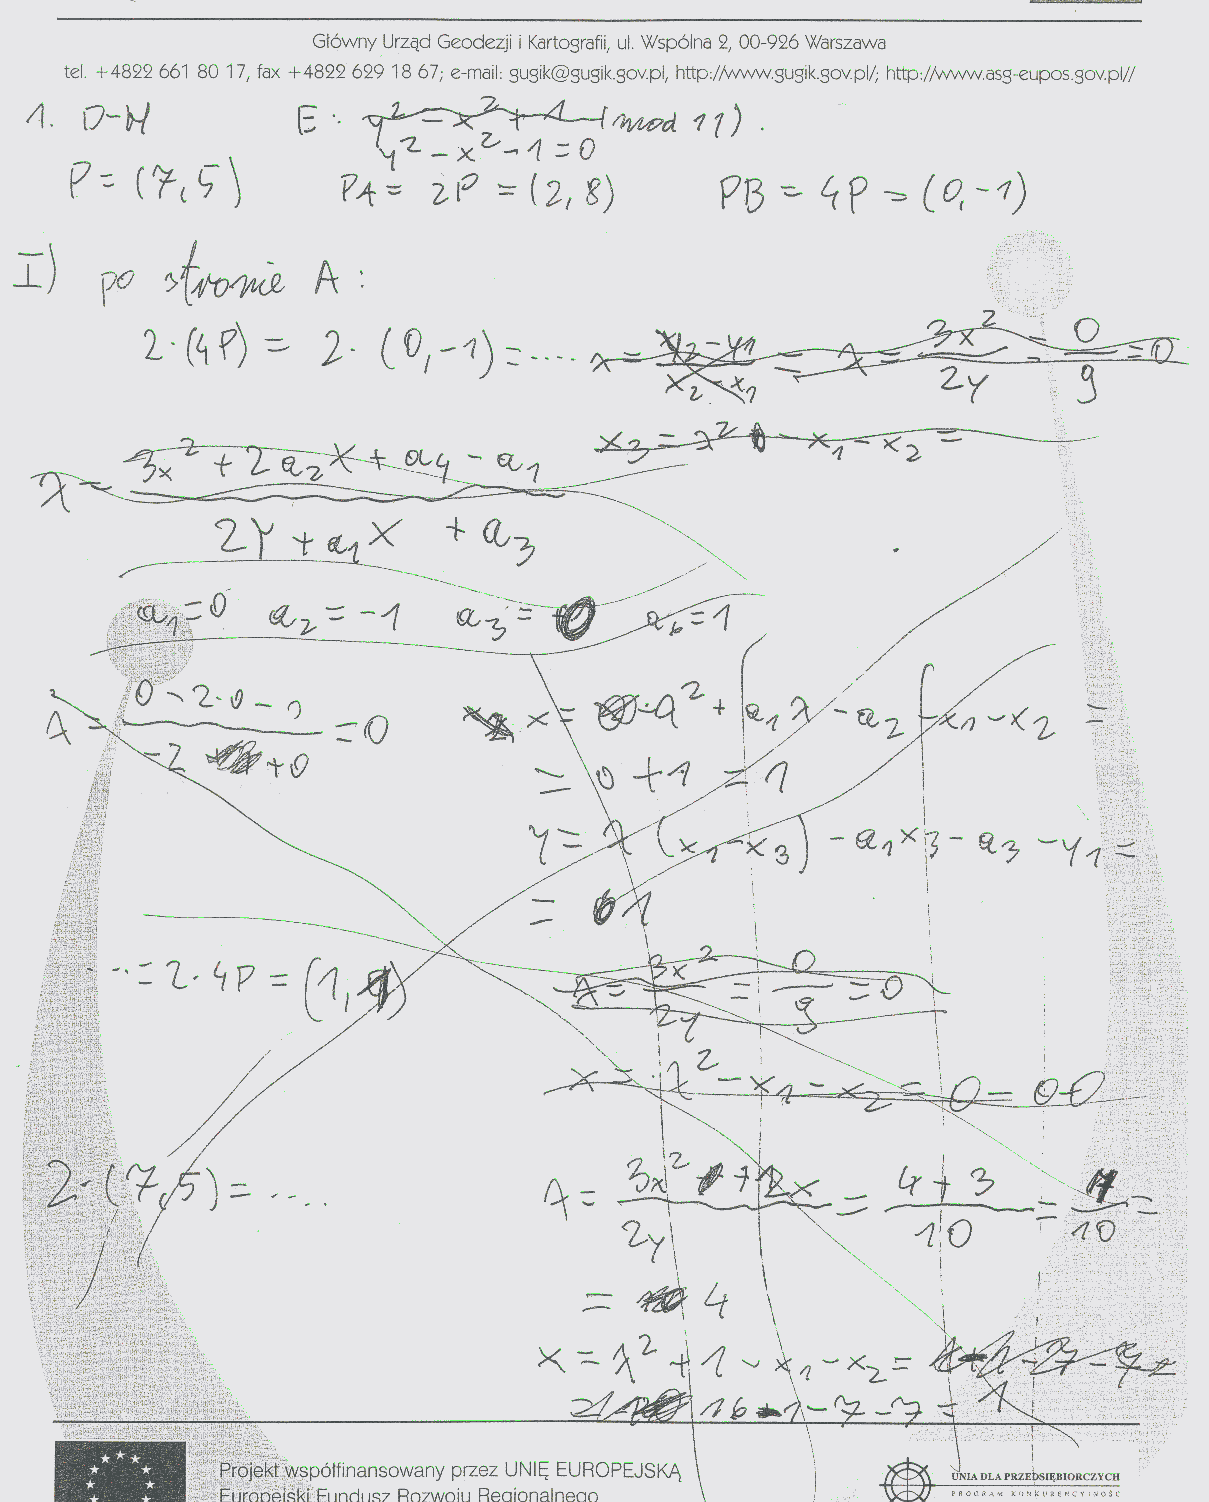 Główny Urząd Geodezji i Kartografii, ul. Wspólna 2, 00-926 Warszawa
tel. +4822 661 80 17, fax +4822 629 18 67; e-mail: gugik@gugik.gov.pl, http://www.gugik.gov.pl/; http://www.asg-eupos.gov.pl//
1. D-H E: y² = x² + 1 (mod 11).
y² - x² - 1 = 0
P = (7,5) PA = 2P = (2,8) PB = 4P = (0,-1)
I) po stronie A:
2·(4P) = 2·(0,-1) = .... λ = y2-y1 / x2-x1 = λ = 3x² / 2y = 0 / 9 = 0
x3 = λ² - x1 - x2 =
λ = 3x² + 2a2x + a4 - a1 / 2Y + a1X + a3
a1 = 0 a2 = -1 a3 = 0 a6 = 1
λ = 0 - 2·0 - 0 / -2 + 0 = 0
x = λ² + a1λ - a2 - x1 - x2 =
= 0 + 1 = 1
y = λ (x1 - x3) - a1x3 - a3 - y1 =
= 1
... = 2·4P = (1, 1)
λ = 3x² / 2y = 0 / 9 = 0
x = λ² - x1 - x2 = 0 - 0-0
2·(7,5) = ....
λ = 3x² + 2x / 2y = 4 + 3 / 10 = 7 / 10 =
= 4
x = λ² + 1 - x1 - x2 =
16 - 1 - 7 - 7 = 1
Projekt współfinansowany przez UNIĘ EUROPEJSKĄ
Europejski Fundusz Rozwoju Regionalnego
UNIA DLA PRZEDSIĘBIORCZYCH
PROGRAM KONKURENCYJNOŚĆ